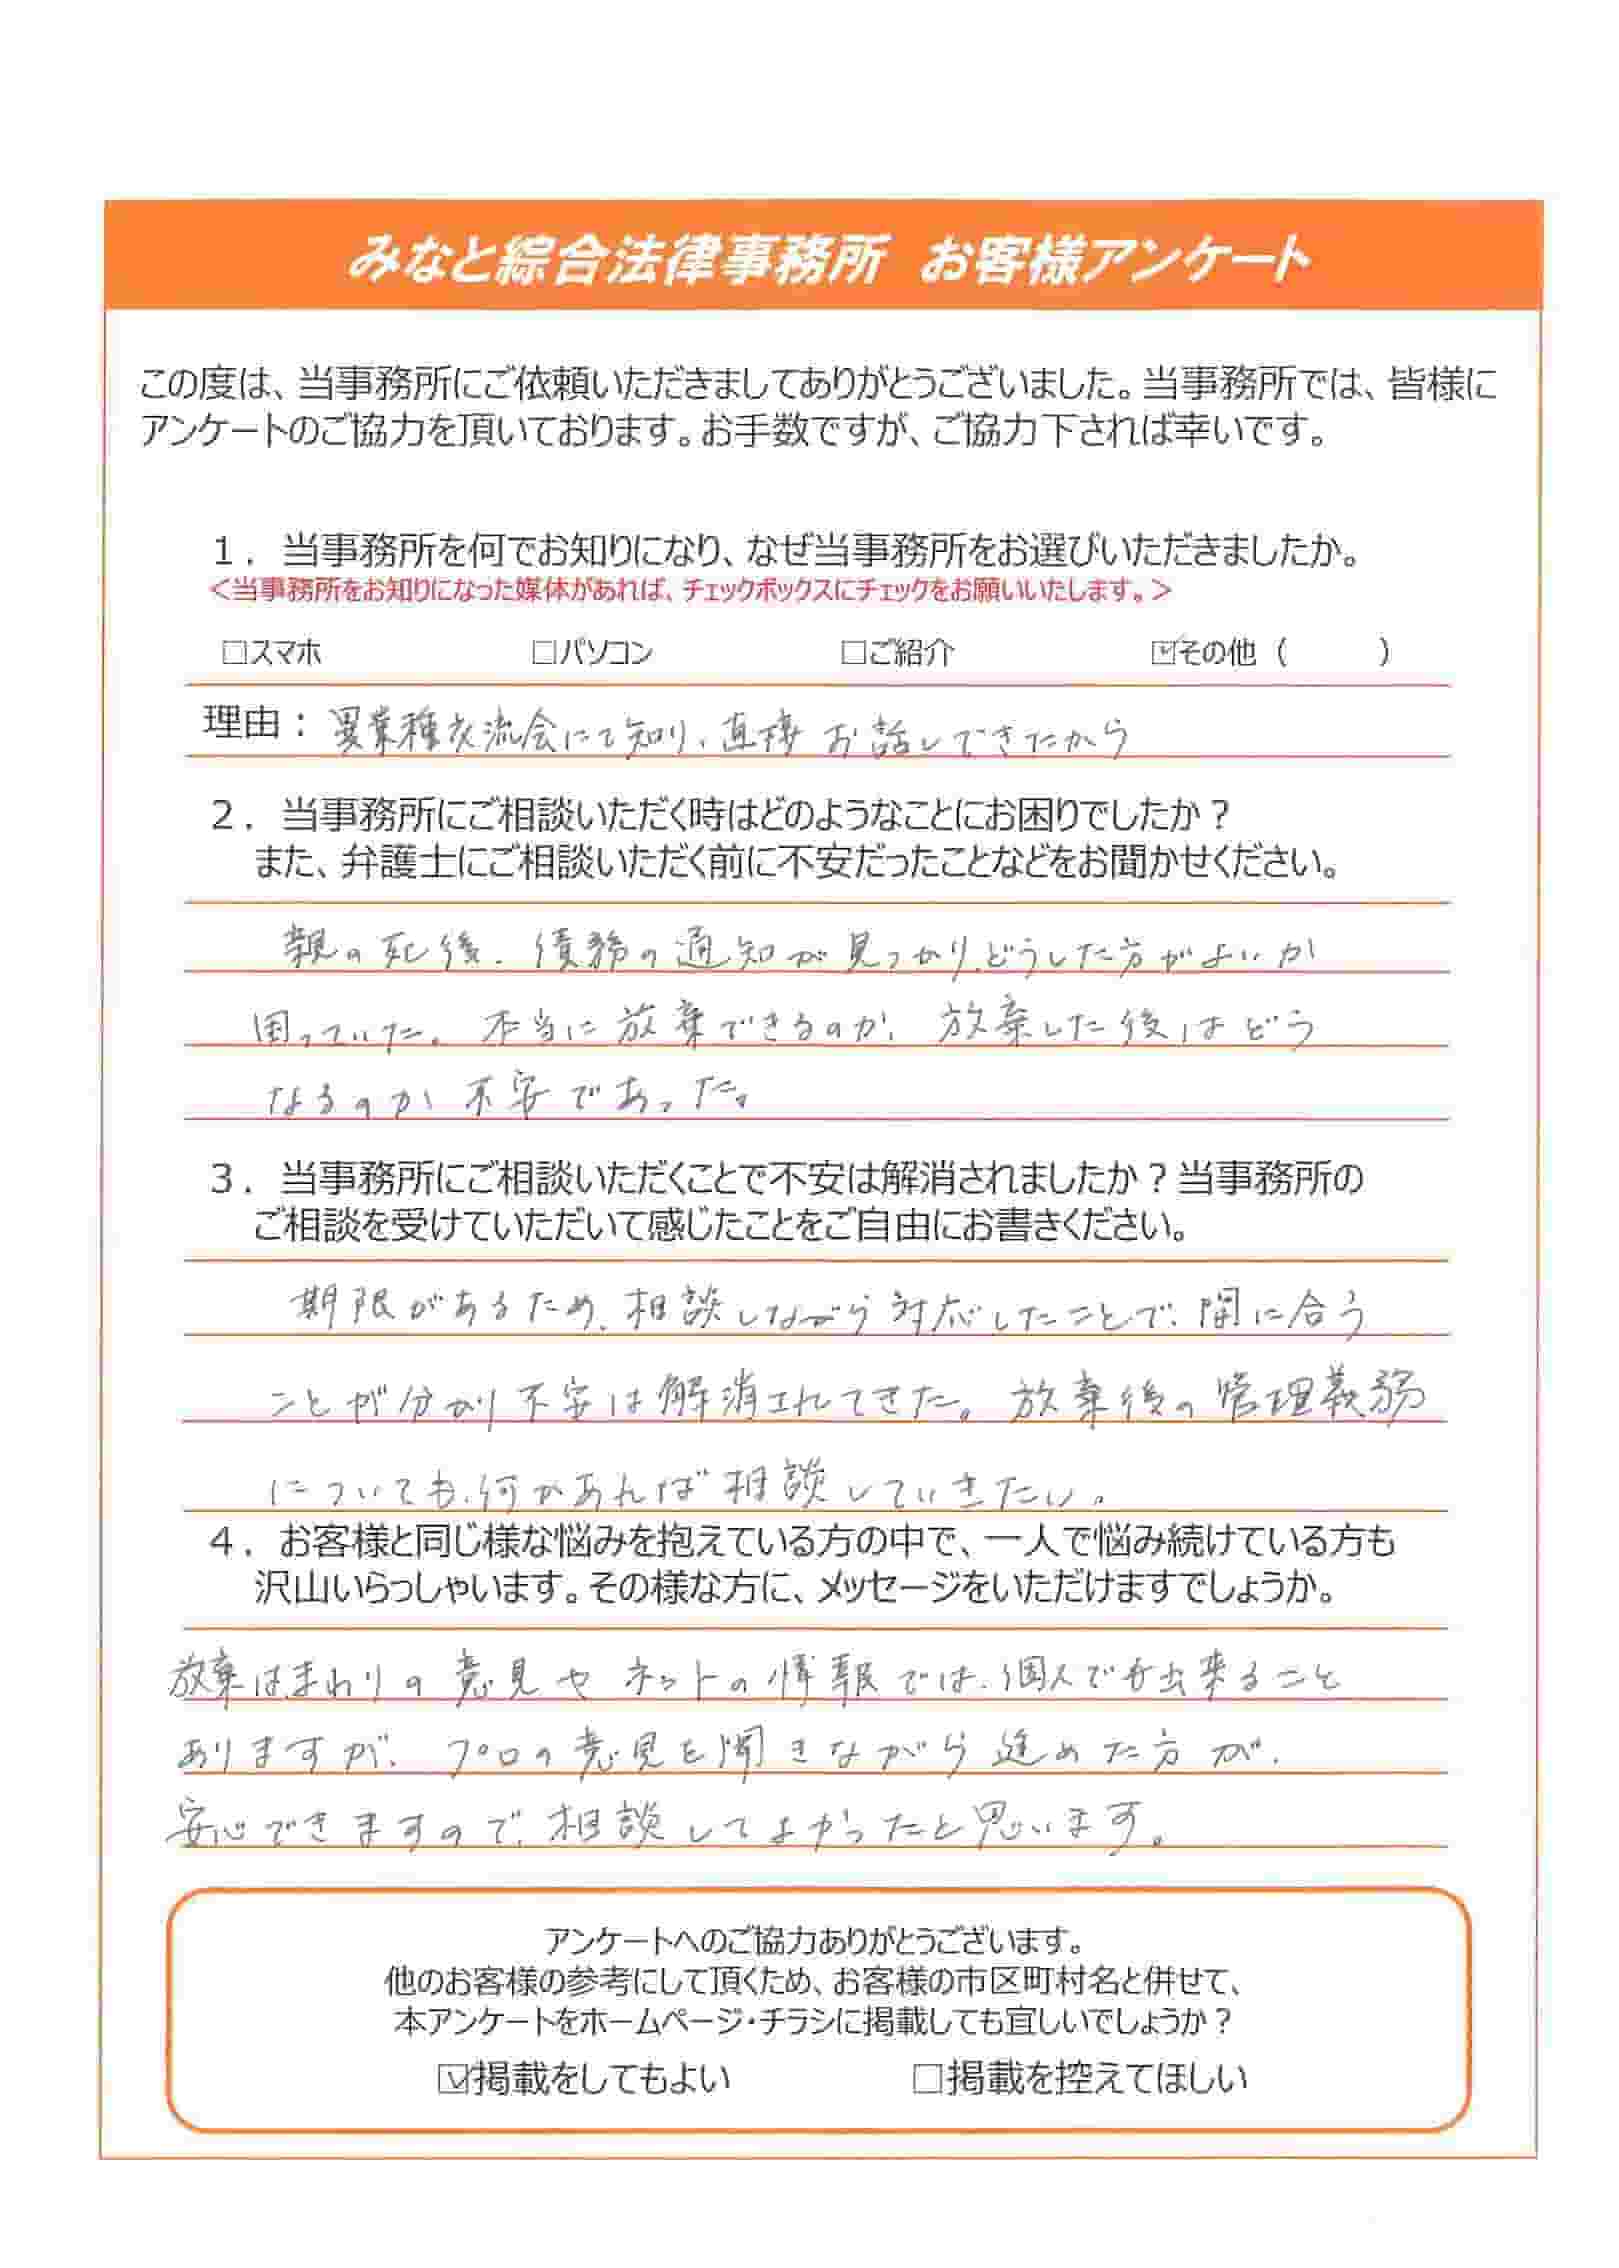 みなと綜合法律事務所 お客様アンケート
この度は、当事務所にご依頼いただきましてありがとうございました。当事務所では、皆様に
アンケートのご協力を頂いております。お手数ですが、ご協力下されば幸いです。
1．当事務所を何でお知りになり、なぜ当事務所をお選びいただきましたか。
＜当事務所をお知りになった媒体があれば、チェックボックスにチェックをお願いいたします。＞
□スマホ □パソコン □ご紹介 ☑その他（ ）
理由：異業種交流会にて知り、直接お話しできたから
2．当事務所にご相談いただく時はどのようなことにお困りでしたか？
また、弁護士にご相談いただく前に不安だったことなどをお聞かせください。
親の死後、債務の通知が見つかり、どうした方がよいか
困っていた。本当に放棄できるのか、放棄した後はどう
なるのか不安であった。
3．当事務所にご相談いただくことで不安は解消されましたか？当事務所の
ご相談を受けていただいて感じたことをご自由にお書きください。
期限があるため、相談しながら対応したことで、間に合う
ことが分かり不安は解消されてきた。放棄後の管理義務
についても、何かあれば相談していきたい。
4．お客様と同じ様な悩みを抱えている方の中で、一人で悩み続けている方も
沢山いらっしゃいます。その様な方に、メッセージをいただけますでしょうか。
放棄はまわりの意見やネットの情報では、個人でも出来ること
ありますが、プロの意見を聞きながら進めた方が、
安心できますので、相談してよかったと思います。
アンケートへのご協力ありがとうございます。
他のお客様の参考にして頂くため、お客様の市区町村名と併せて、
本アンケートをホームページ・チラシに掲載しても宜しいでしょうか？
☑掲載をしてもよい □掲載を控えてほしい